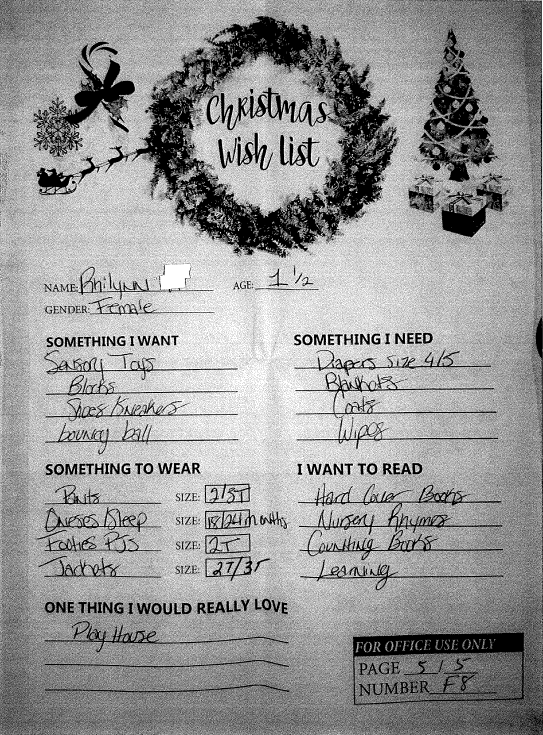 Christmas
Wish List
NAME: Rhilynn
AGE: 1 1/2
GENDER: Female
SOMETHING I WANT
Sensory Toys
Blocks
Shoes/Sneakers
bouncy ball
SOMETHING I NEED
Diapers Size 4/5
Blankets
Coats
Wipes
SOMETHING TO WEAR
Pants SIZE: 2/3T
Onesies/Sleep SIZE: 18/24 months
Footies PJs SIZE: 2T
Jackets SIZE: 2T/3T
I WANT TO READ
Hard Cover Books
Nursery Rhymes
Counting Books
Learning
ONE THING I WOULD REALLY LOVE
Play House
FOR OFFICE USE ONLY
PAGE 5/5
NUMBER F8